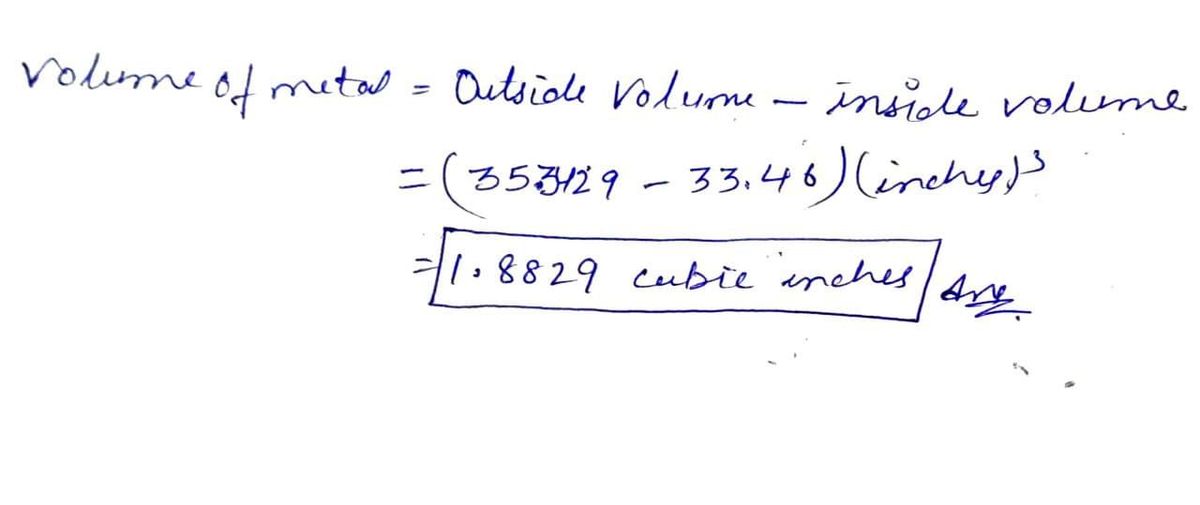 Volume of metal = Outside Volume – inside volume
= (35.3429 – 33.46) (inches)³
= 1.8829 cubic inches Ans.